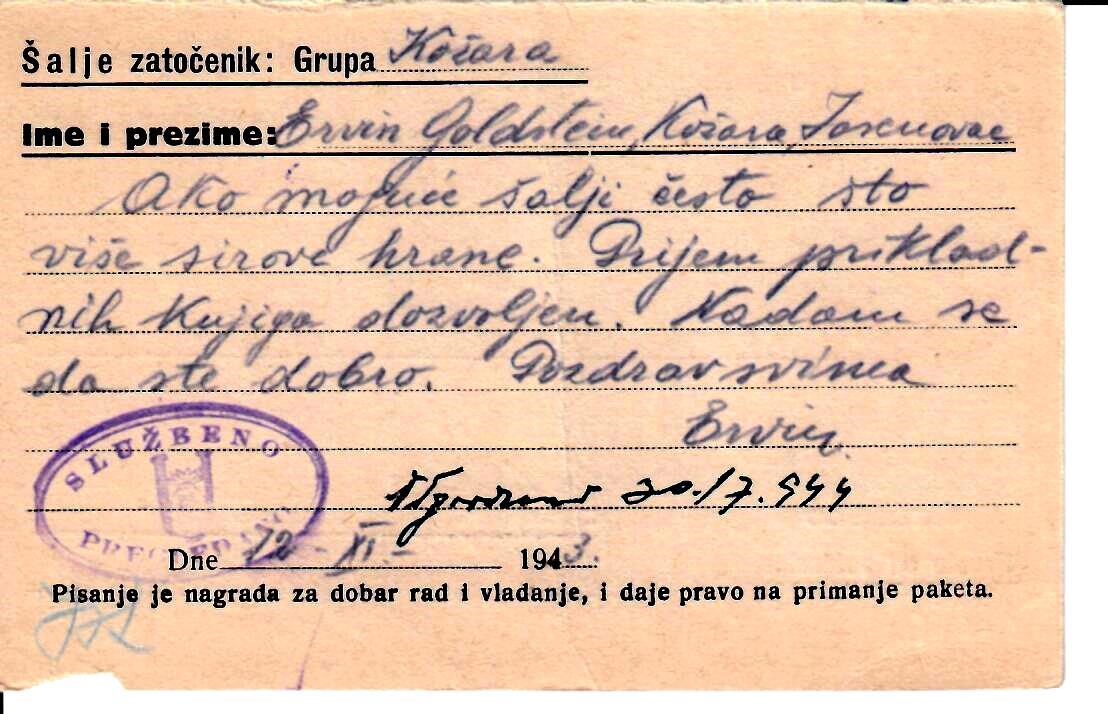 Šalje zatočenik: Grupa Kožara
Ime i prezime: Ervin Goldstein, Kožara, Jasenovac
Ako moguće šalji često što
više sirove hrane. Prijem priklad-
nih knjiga dozvoljen. Nadam se
da ste dobro. Pozdrav svima
Ervin
30./7. 944
SLUŽBENO
PREGLEDANO
Dne 12-XI.- 1943.
Pisanje je nagrada za dobar rad i vladanje, i daje pravo na primanje paketa.